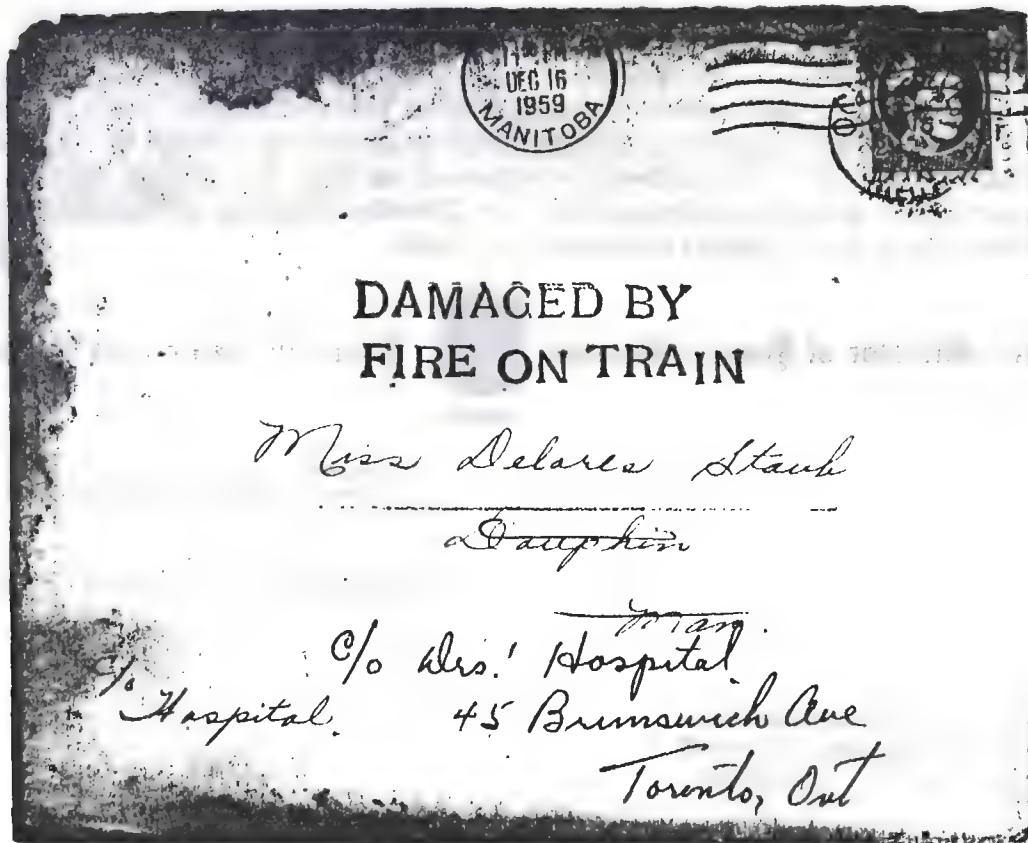 DEC 16
1959
MANITOBA
DAMAGED BY
FIRE ON TRAIN
Miss Delares Staub
Dauphin
Man.
c/o Drs! Hospital
c/o
Hospital. 45 Brunswick Ave
Toronto, Ont